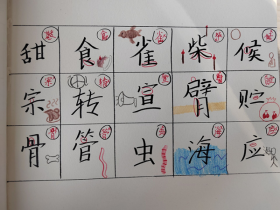 甜 食 雀 柴 候
宗 转 宣 臂 贮
骨 管 虫 海 应